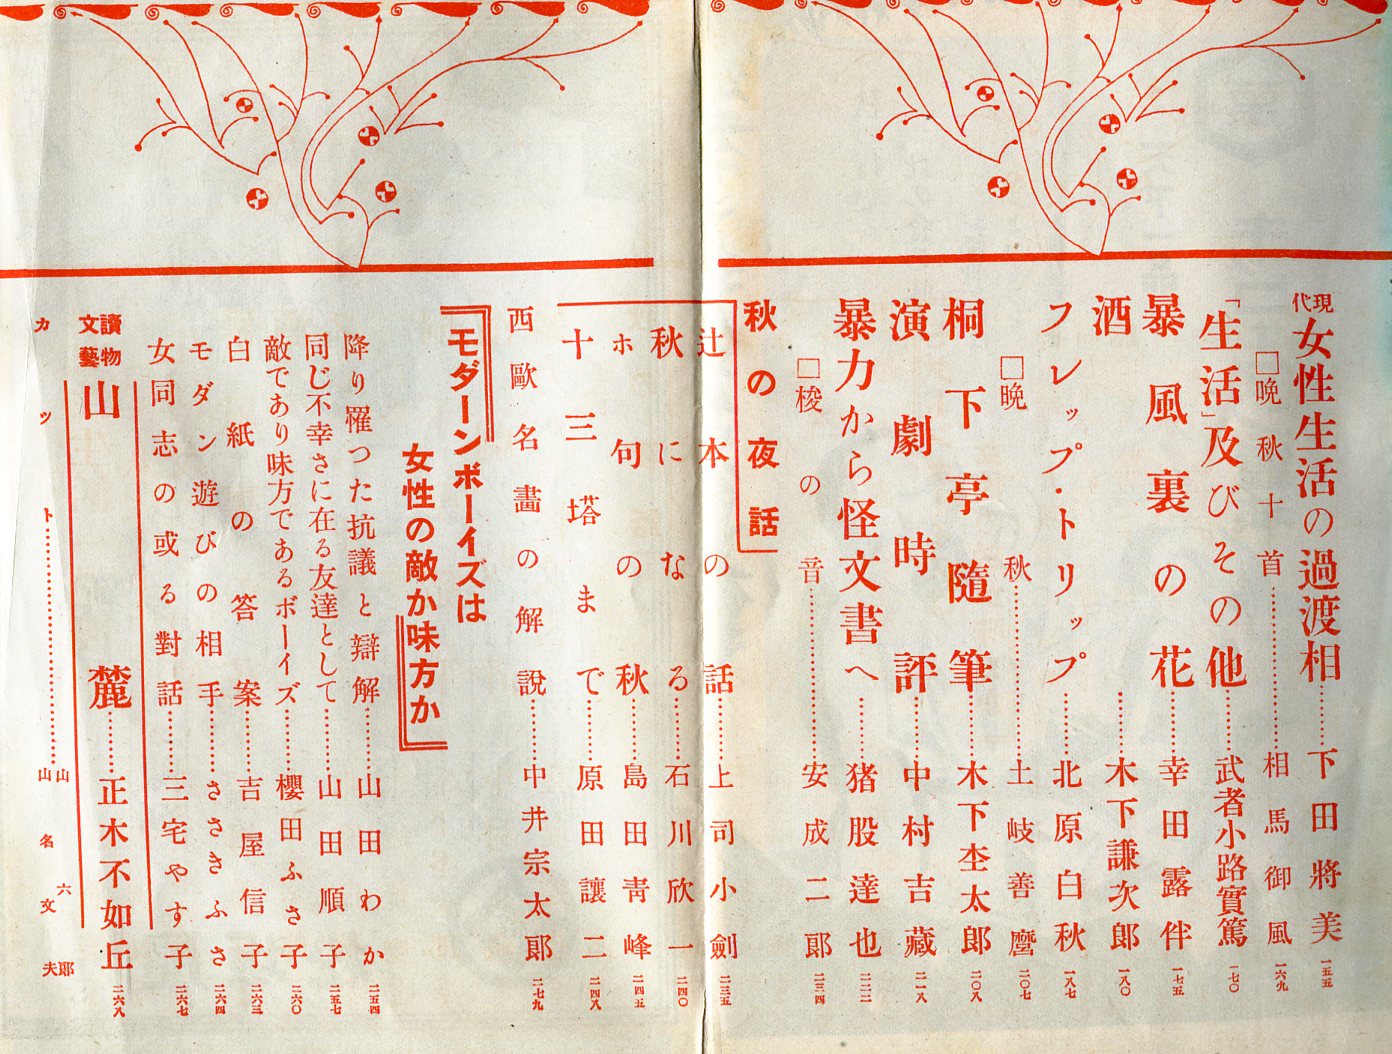 現代 女性生活の過渡相……下田將美 一五五
□晩秋十首……相馬御風 一六九
「生活」及びその他……武者小路實篤 一七〇
暴風裏の花……幸田露伴 一七五
酒……木下謙次郎 一八〇
フレップ・トリップ……北原白秋 一八七
□晩秋……土岐善麿 二〇七
桐下亭隨筆……木下杢太郎 二〇八
演劇時評……中村吉藏 二一八
暴力から怪文書へ……猪股達也 二二二
□梭の音……安成二郎 二三四
秋の夜話
辻本の話……上司小劍 二三五
秋になる……石川欣一 二四〇
ホ句の秋……島田靑峰 二四五
十三塔まで……原田讓二 二四八
西歐名畫の解說……中井宗太郎 二七九
『モダーンボーイズは
女性の敵か味方か』
降り罹つた抗議と辯解……山田わか 二五四
同じ不幸さに在る友達として……山田順子 二五七
敵であり味方であるボーイズ……櫻田ふさ子 二六〇
白紙の答案……吉屋信子 二六三
モダン遊びの相手……ささきふさ 二六四
女同志の或る對話……三宅やす子 二六七
讀物文藝 山麓……正木不如丘 二六八
カット……山六郎
山名文夫